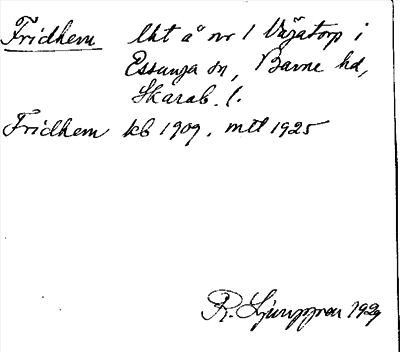 Fridhem lht å nr 1 Väjatorp i
Essunga sn, Barne hd,
Skarab. l.
Fridhem kb 1909. mtl 1925
R. Ljunggren 1929